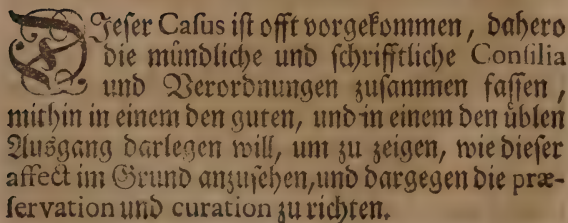 DIeſer Caſus iſt offt vorgekommen, dahero
die mündliche und ſchrifftliche Conſilia
und Verordnungen zuſammen faſſen,
mithin in einem den guten, und in einem den üblen
Außgang darlegen will, um zu zeigen, wie dieſer
affect im Grund anzuſehen, und dargegen die præ-
ſervation und curation zu richten.